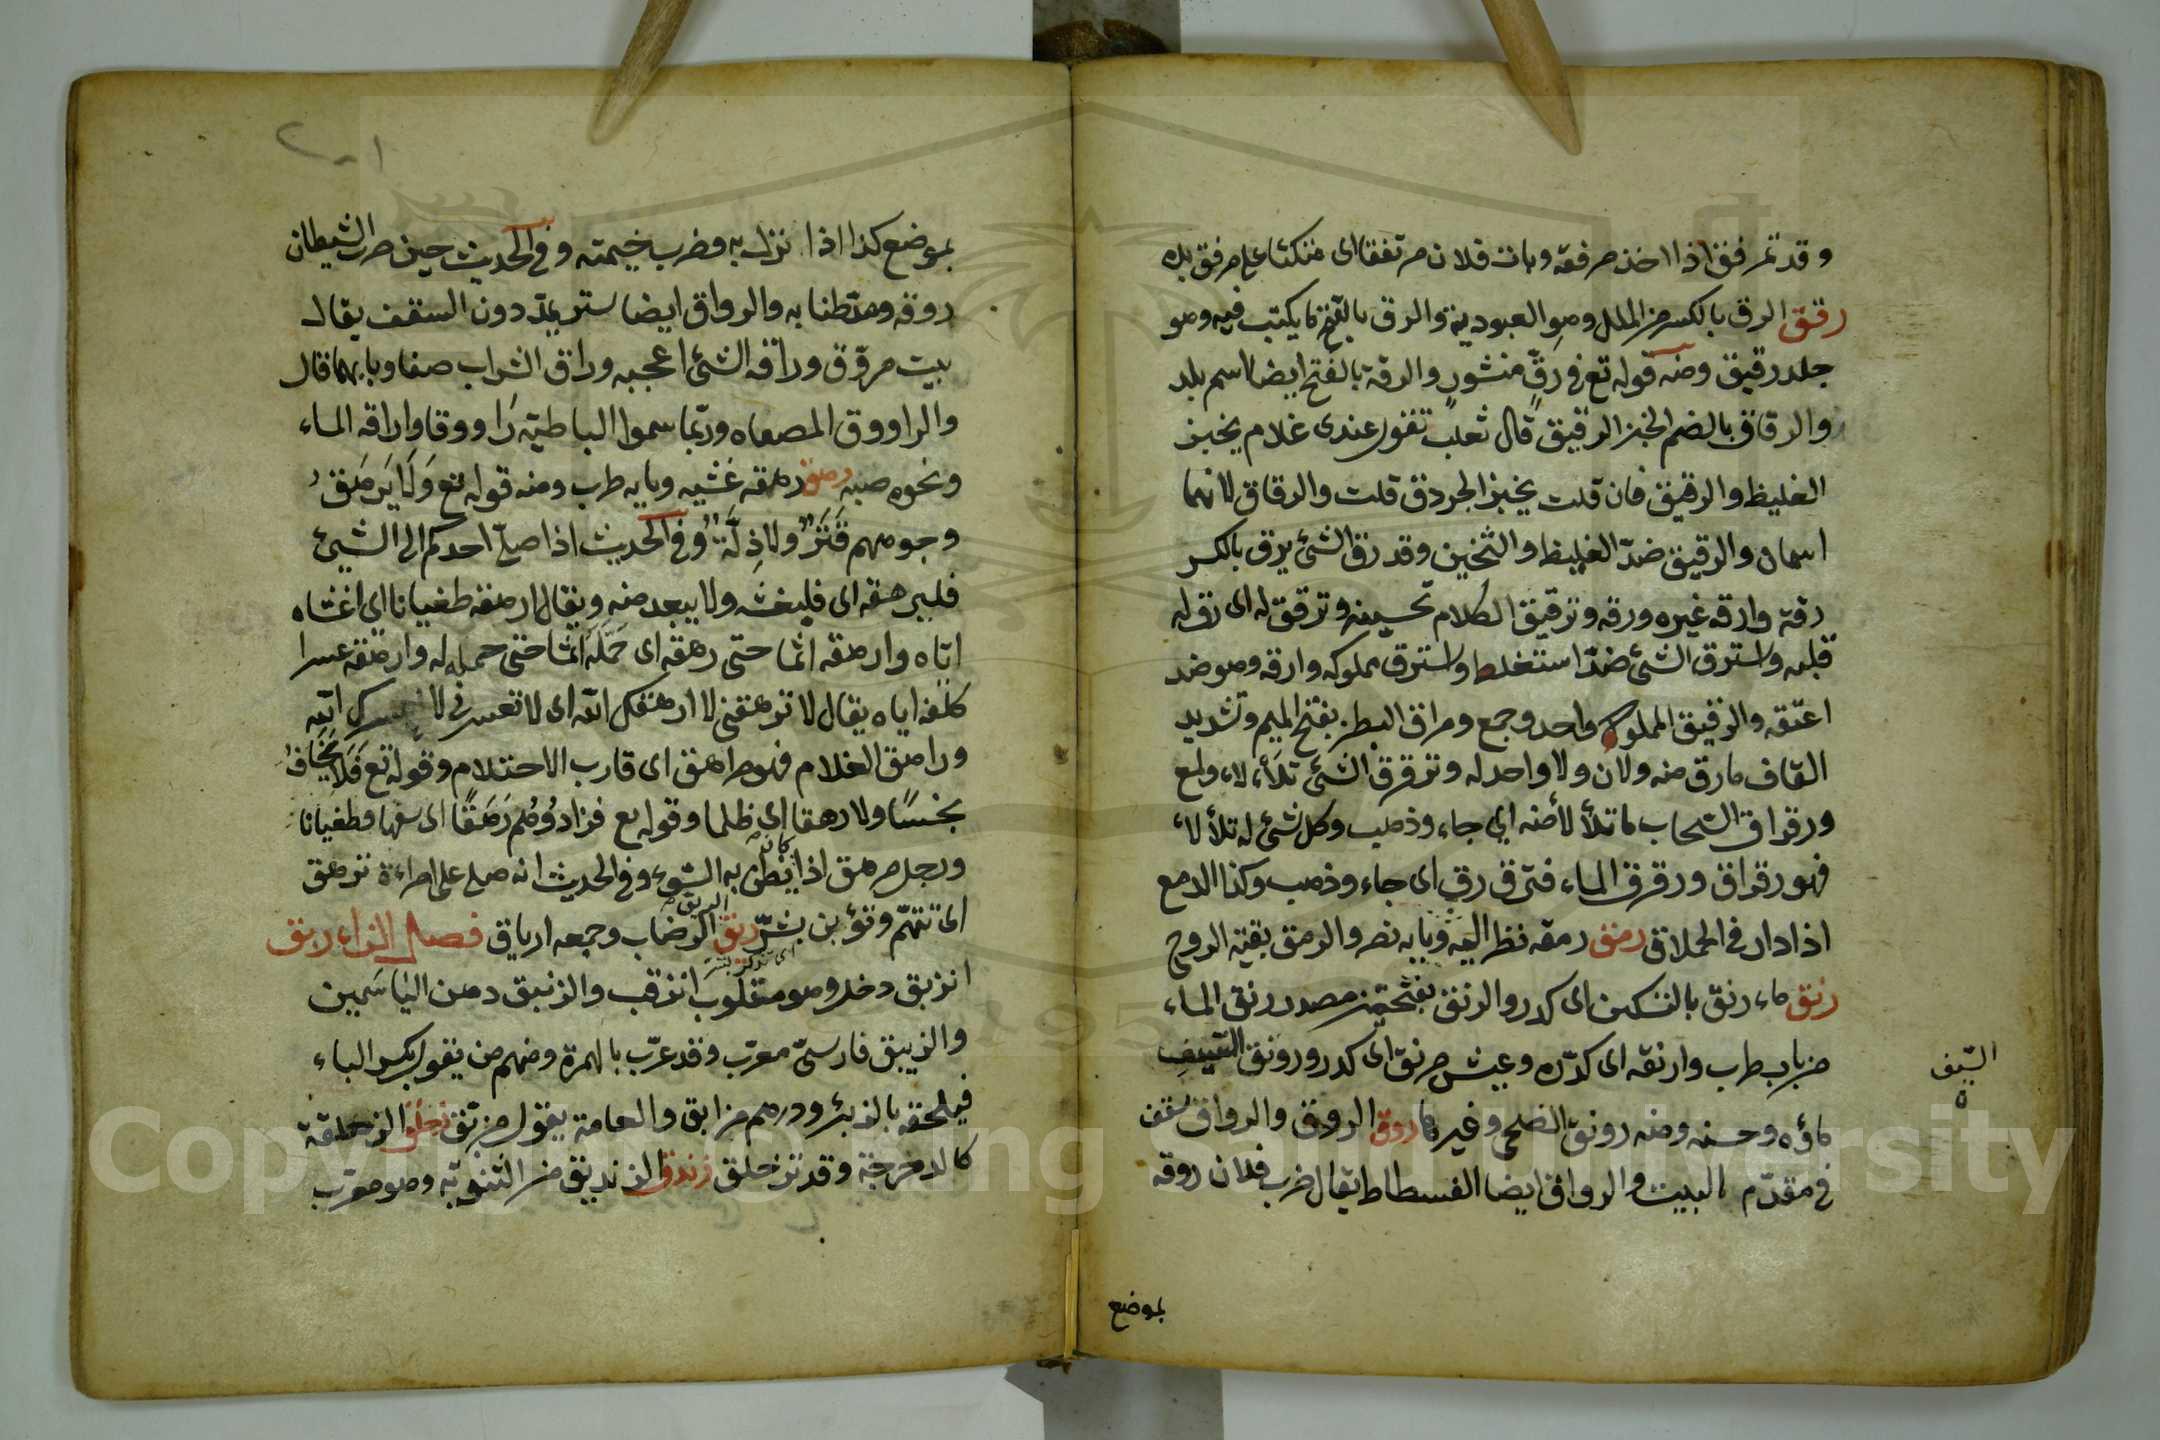 وقد تمرفق اذا اخذ مرفقه وبات فلان مرتفقا اى متكئا على مرفق يده
رقق الرق بالكسر من الملك وهو العبودية والرق بالفتح ما يكتب فيه وهو
جلد رقيق ومنه قوله تع فى رَقٍّ منشورٍ والرقة بالفتح ايضا اسم بلد
والرقاق بالضم الخبز الرقيق قال ثعلب تقول عندى غلام يخبز
الغليظ والرقيق فان قلت يخبز الجردق قلت والرقاق لانهما
اسمان والرقيق ضدّ الغليظ والثخين وقد رق الشئ يرق بالكسر
رقة وارقه غيره ورقه وترقيق الكلام تحسينه وترقق له اى رق له
قلبه واسترق الشئ ضدّ استغلظ واسترق مملوكه وارقه وهو ضد
اعتقه والرقيق المملوك واحد وجمع ومراق البطن بفتح الميم وتشديد
القاف مارق منه ولان ولا واحد له وترقرق الشئ تلألأ اى لمع
ورقراق السّحاب ما تلألأ منه اي جاء وذهب وكل شئ له تلألأ
فهو رقراق ورقرق الماء فترقرق اى جاء وذهب وكذا الدمع
اذا دار فى الحملاق رمق رمقه نظر اليه وبابه نصر والرمق بقية الروح
رنق ماء رنق بالتسكين اى كدر والرنق بفتحتين مصدر رنق الماء
من باب طرب وارنقه اى كدّره وعيش مرنق اى كدر ورونق السّيف
السّيف
ماؤه وحسنه ومنه رونق الضحى وغيرها روق الروق والرواق سقف
فى مقدّم البيت والرواق ايضا الفسطاط يقال ضرب فلان روقه
بموضع
٢٠١
بموضع كذا اذا نزل به وضرب خيمته وفى الحديث حين ضرب الشيطان
روقه ومدّ طنابه والرواق ايضا ستر يمدّ دون السقف يقال
بيت مروّق وراقه الشئ اعجبه وراق الشراب صفا وبابهما قال
والراووق المصفاه وربّما سموا الباطية رَاووقا واراقه الماء
ونحوه صبه رهق رهقه غشيه وبابه طرب ومنه قوله تع وَلَا يَرهَقُ
وجوههم قَتَرٌ ولا ذِلَّةٌ وفى الحديث اذا صلى احدكم الى الشيئ
فليرهقه اى فليغشه ولا يبعد منه ويقال ارهقه طغيانا اى اغشاه
ايّاه وارهقه اثما حتى رهقه اى حَمَّلَه اثما حتى حمله له وارهقه عسرا
كلفه اياه يقال لا ترهقنى لا ارهقك الله اى لا تعسرنى لا اعسرك الله
وراهق الغلام فهو مراهق اى قارب الاحتلام وقوله تع فَلَا يَخَافُ
بخسًا ولا رهقا اى ظلما وقوله تع فزادُوهُم رَهَقًا اى سفها وطغيانا
ورجل مرهق اذا كان يُظن به السّوء وفى الحديث انه صلى على امراءة ترهق
اى تتّهم وتؤبن بشرّ ريق الريق الرضاب وجمعه ارياق فصل الزاء زبق
انزبق دخل وهو مقلوب انزقب والزنبق دهن الياسَمين
والزيبق فارسىّ معرّب وقد عرّب بالهمزة ومنهم من يقول بكسر الباء
فيلحقه بالزئبر ودرهم مزابق والعامة يقول مزبّق زحلق الزحلقة
كالدحرجة وقد تزحلق زندق الزنديق من الثنويّة وهو معرّب